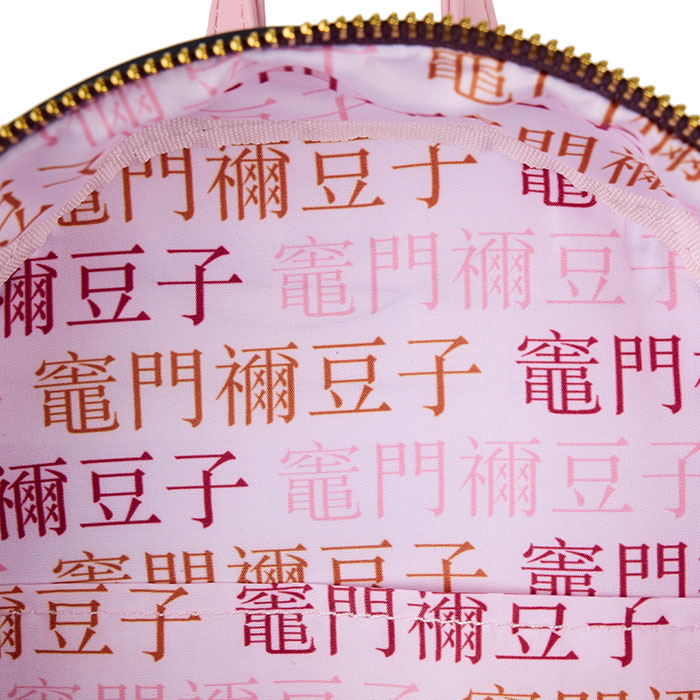 竈門
竈門禰豆子 竈門禰
禰豆子 竈門禰豆子
竈門禰豆子 竈門禰
禰豆子 竈門禰豆子
竈門禰豆子 竈門禰
豆子 竈門禰豆子
竈門禰豆子 竈門禰豆子